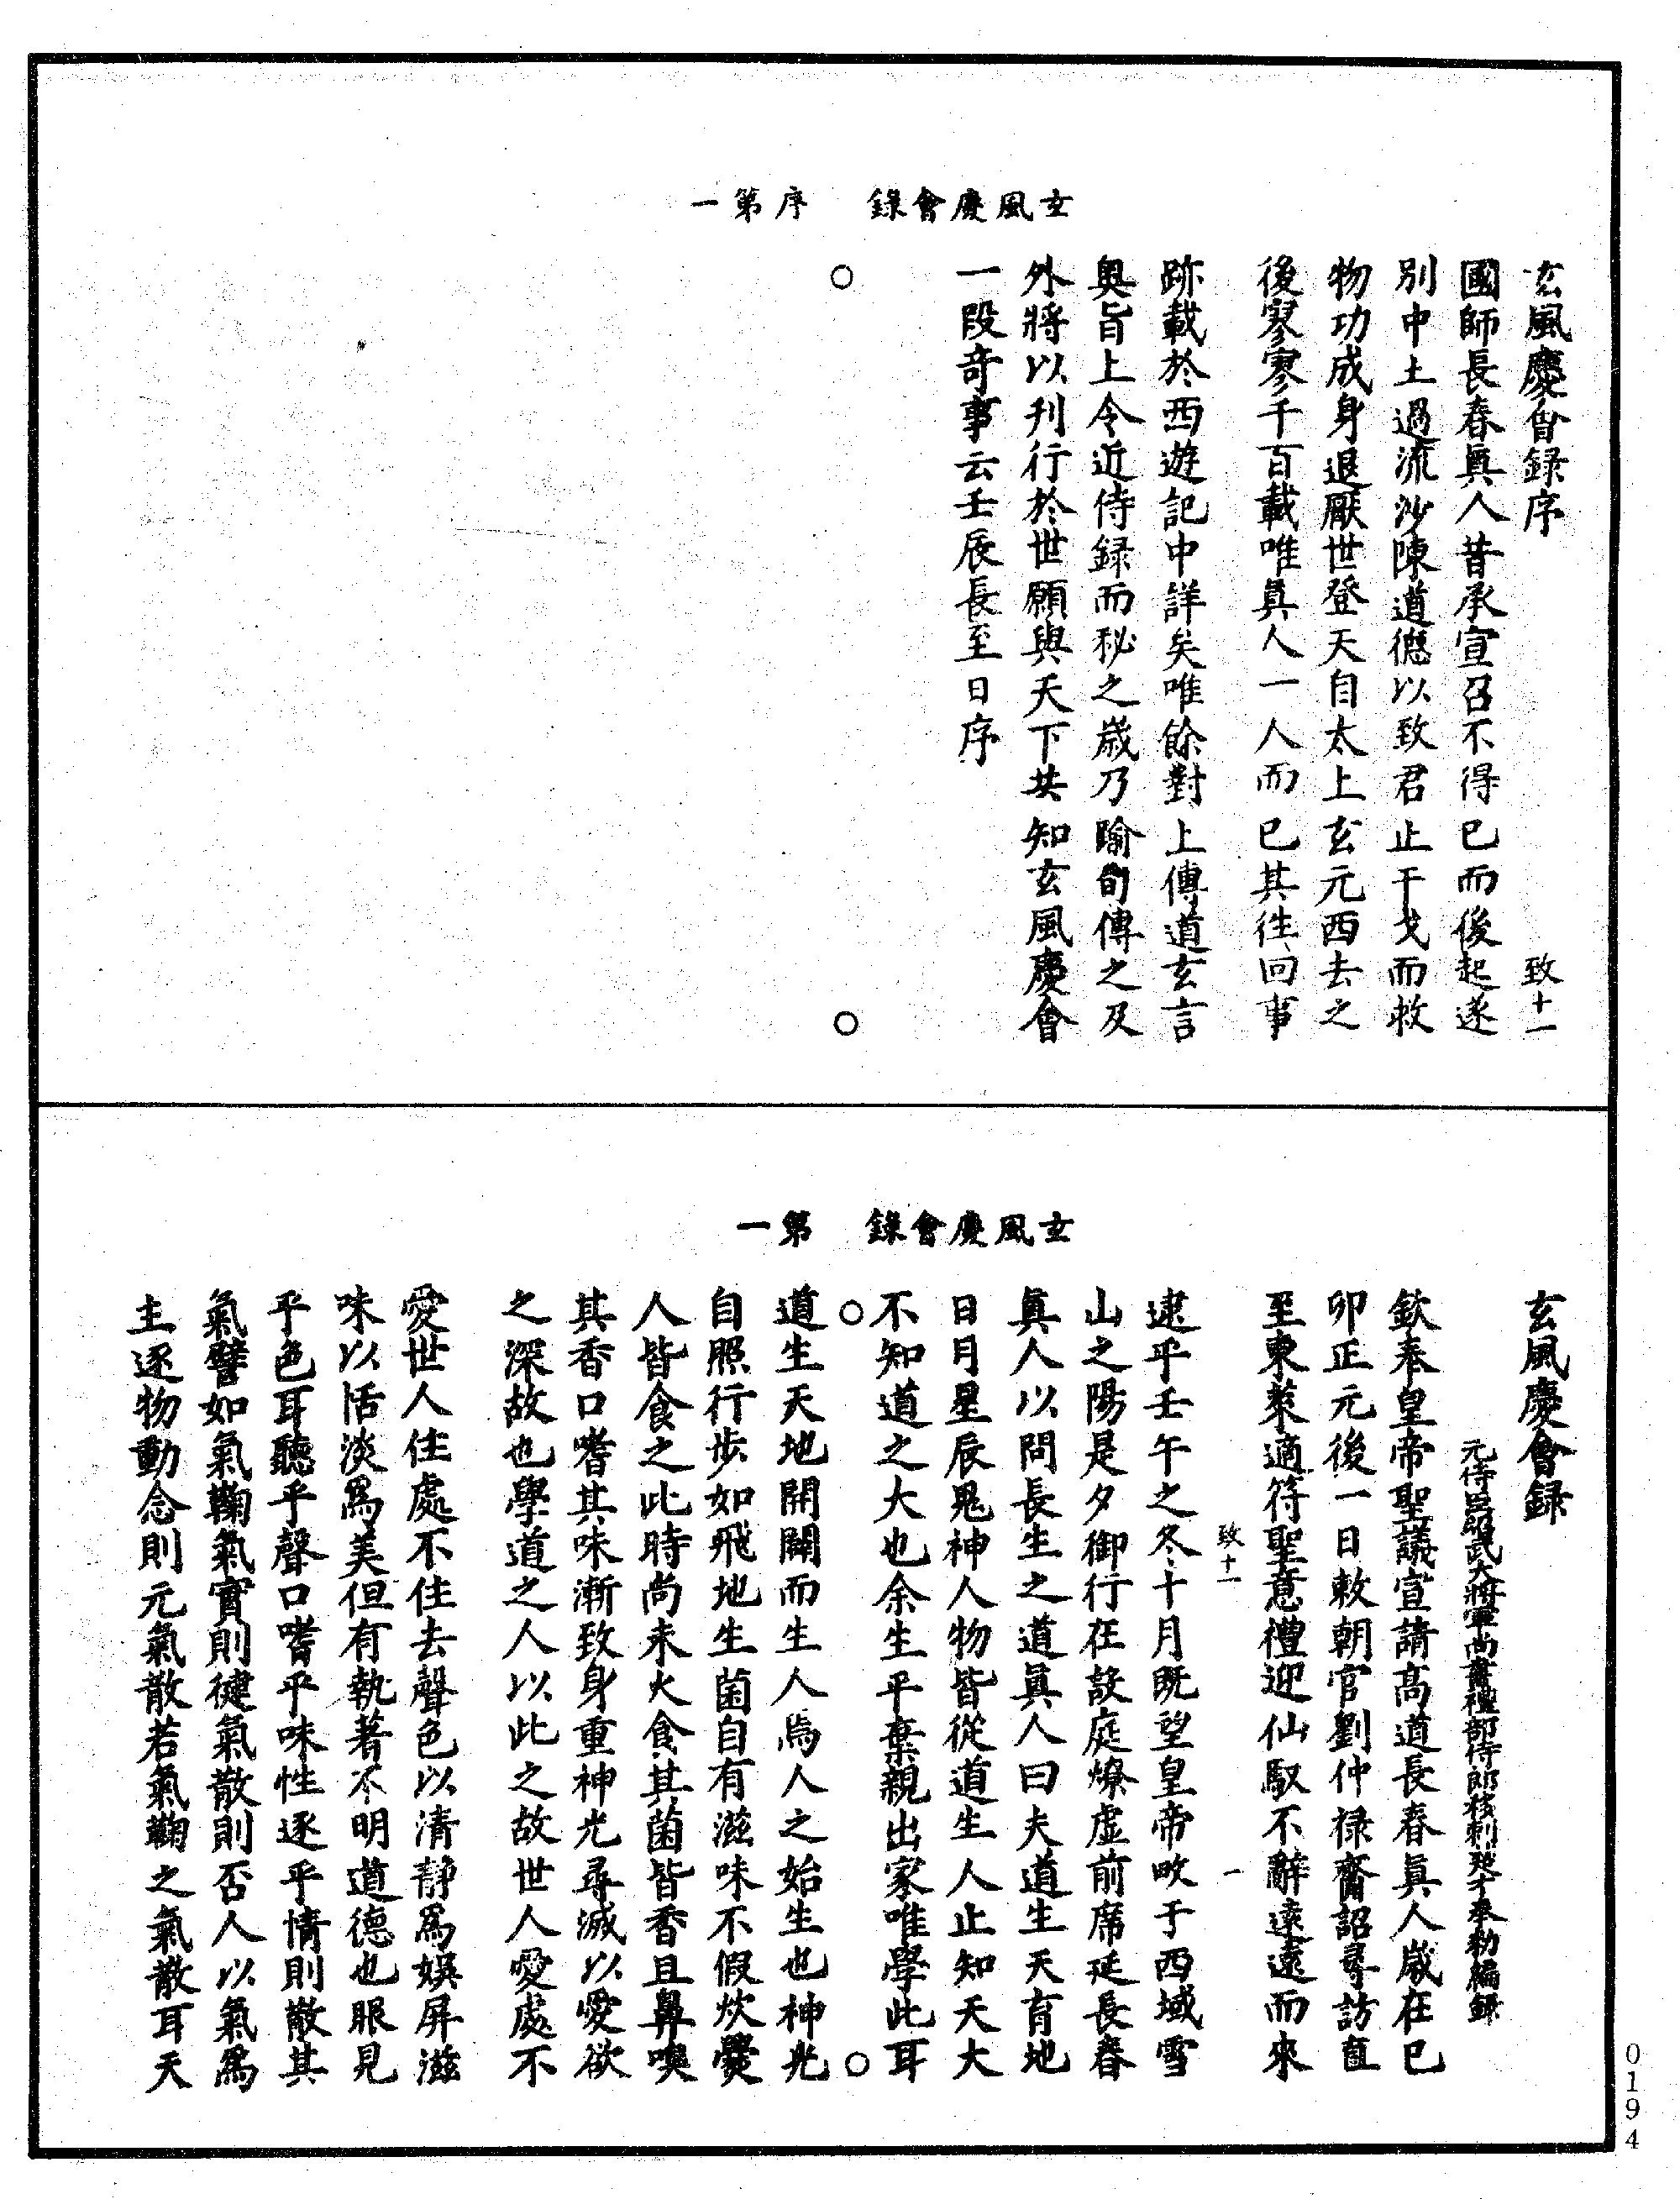 玄風慶會錄　序第一
玄風慶會録序　致十一
國師長春真人昔承宣召不得已而後起遂
別中土過流沙陳道德以致君止干戈而救
物功成身退厭世登天自太上玄元西去之
後寥寥千百載唯真人一人而已其往回事
跡載於西遊記中詳矣唯餘對上傳道玄言
奧旨上令近侍録而秘之歲乃踰旬傳之及
外將以刊行於世願與天下共知玄風慶會
一段奇事云壬辰長至日序
玄風慶會錄　第一
玄風慶會録
元侍臣昭武大將軍尚書禮部侍郎移剌楚才奉勅編録
欽奉皇帝聖議宣請高道長春真人歲在已
卯正元後一日敕朝官劉仲禄齎詔尋訪直
至東萊適符聖意禮迎仙馭不辭遠遠而來
致十一　一
逮乎壬午之冬十月既望皇帝畋于西域雪
山之陽是夕御行在設庭燎虛前席延長春
真人以問長生之道真人曰夫道生天育地
日月星辰鬼神人物皆從道生人止知天大
不知道之大也余生平棄親出家唯學此耳
道生天地開闢而生人焉人之始生也神光
自照行步如飛地生菌自有滋味不假炊爨
人皆食之此時尚未火食其菌皆香且鼻嗅
其香口嗜其味漸致身重神光尋滅以愛欲
之深故也學道之人以此之故世人愛處不
愛世人住處不住去聲色以清靜爲娛屏滋
味以恬淡爲美但有執著不明道德也眼見
乎色耳聽乎聲口嗜乎味性逐乎情則散其
氣譬如氣鞠氣實則健氣散則否人以氣爲
主逐物動念則元氣散若氣鞠之氣散耳天
0194